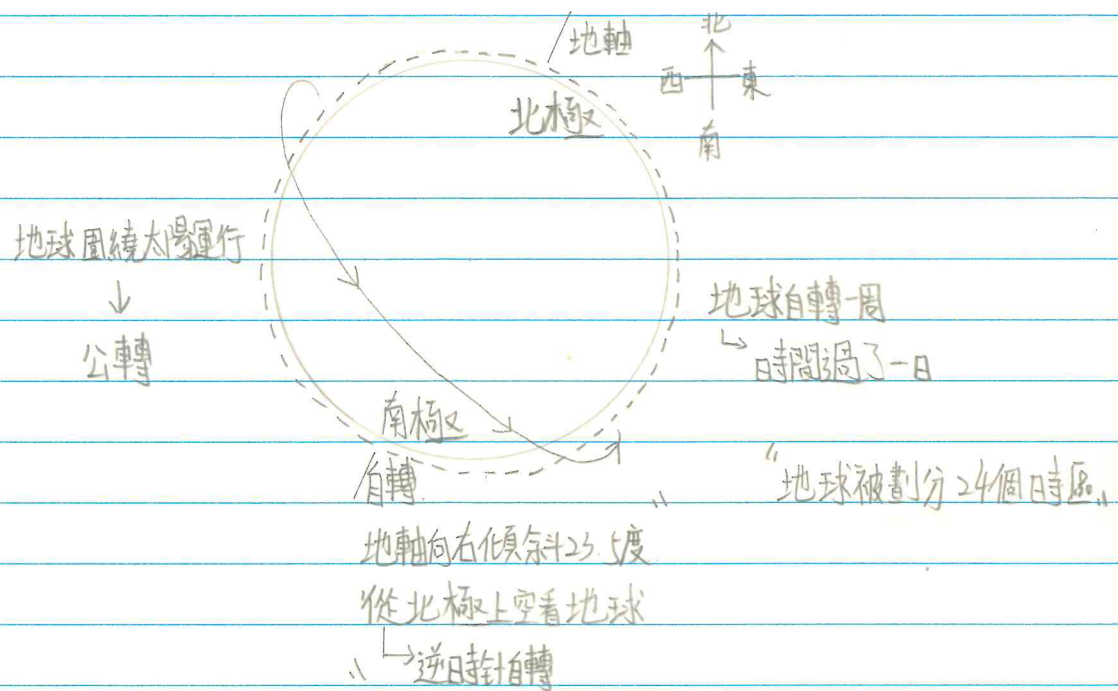 地軸
北
西 東
南
北極
地球圍繞太陽運行
↓
公轉
地球自轉一周
↳時間過了一日
南極
自轉
"地球被劃分24個時區"
"地軸向右傾斜23.5度
從北極上空看地球
↳逆時針自轉"